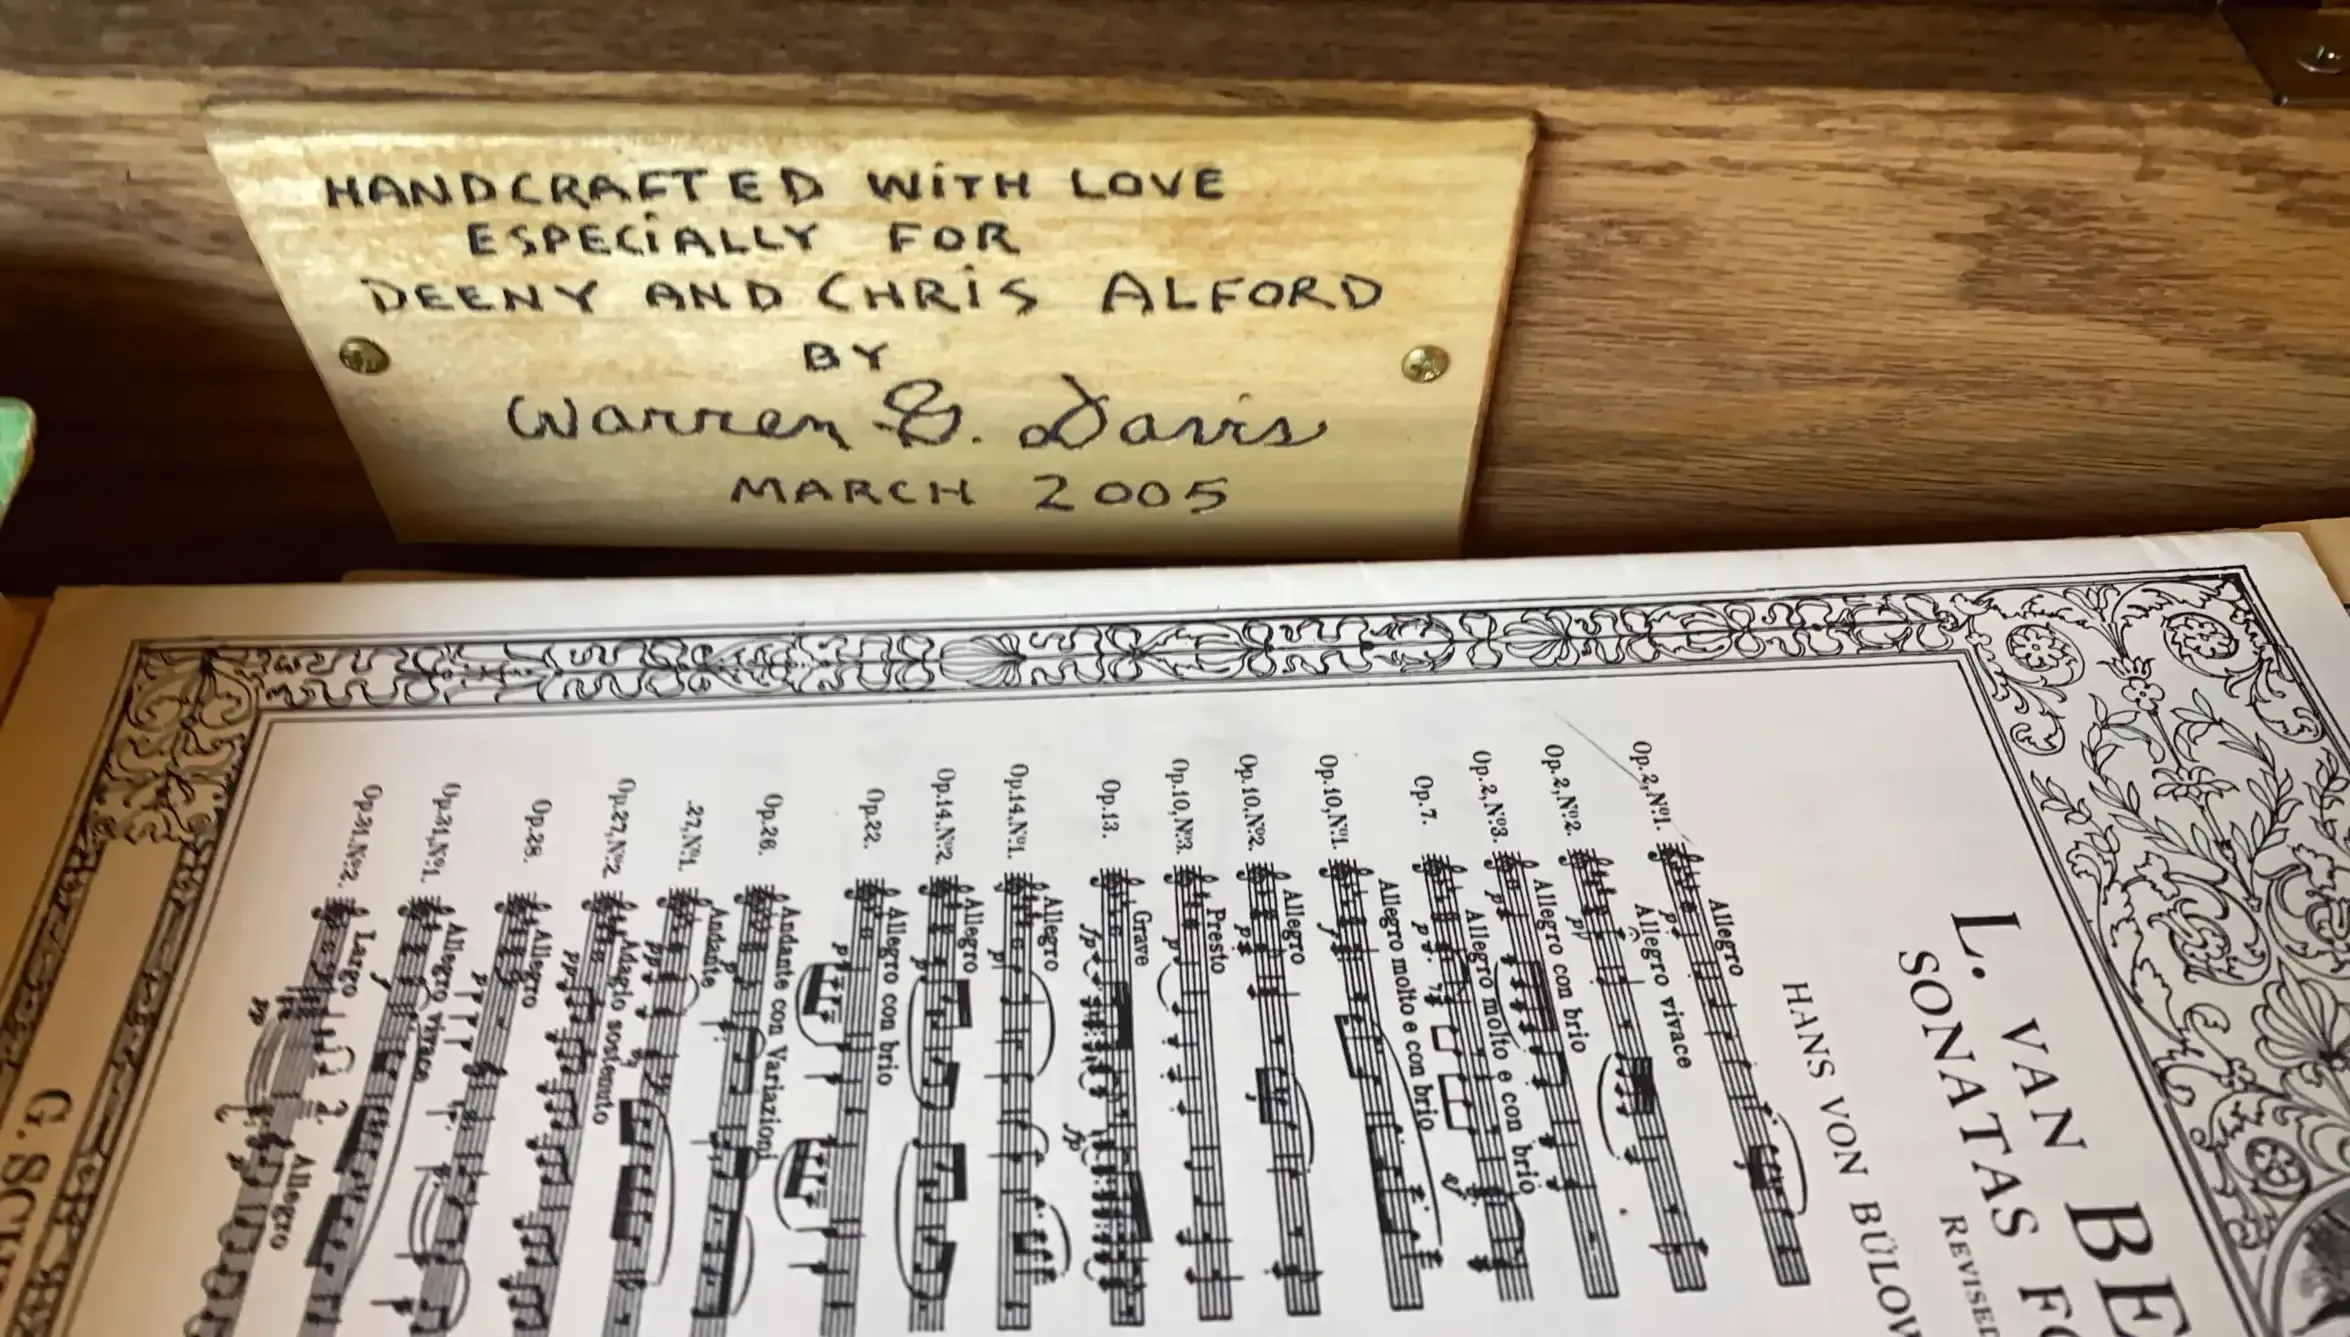 HANDCRAFTED WITH LOVE
ESPECIALLY FOR
DEENY AND CHRIS ALFORD
BY
Warren G. Davis
MARCH 2005
L. VAN BE
SONATAS FO
REVISED
HANS VON BÜLOW
Op.2,Nº1.
Allegro
p
Op.2,Nº2.
Allegro vivace
p
Op.2,Nº3.
Allegro con brio
p
Op.7.
Allegro molto e con brio
p
sf
Op.10,Nº1.
Allegro molto e con brio
f
Op.10,Nº2.
Allegro
p
Op.10,Nº3.
Presto
p
Op.13.
Grave
fp
fp
Op.14,Nº1.
Allegro
p
Op.14,Nº2.
Allegro
p
Op.22.
Allegro con brio
p
Op.26.
Andante con Variazioni
p
.27,Nº1.
Andante
pp
Op.27,Nº2.
Adagio sostenuto
pp
Op.28.
Allegro
p
Op.31,Nº1.
Allegro vivace
f
Op.31,Nº2.
Largo
pp
Allegro
p
G. SCH